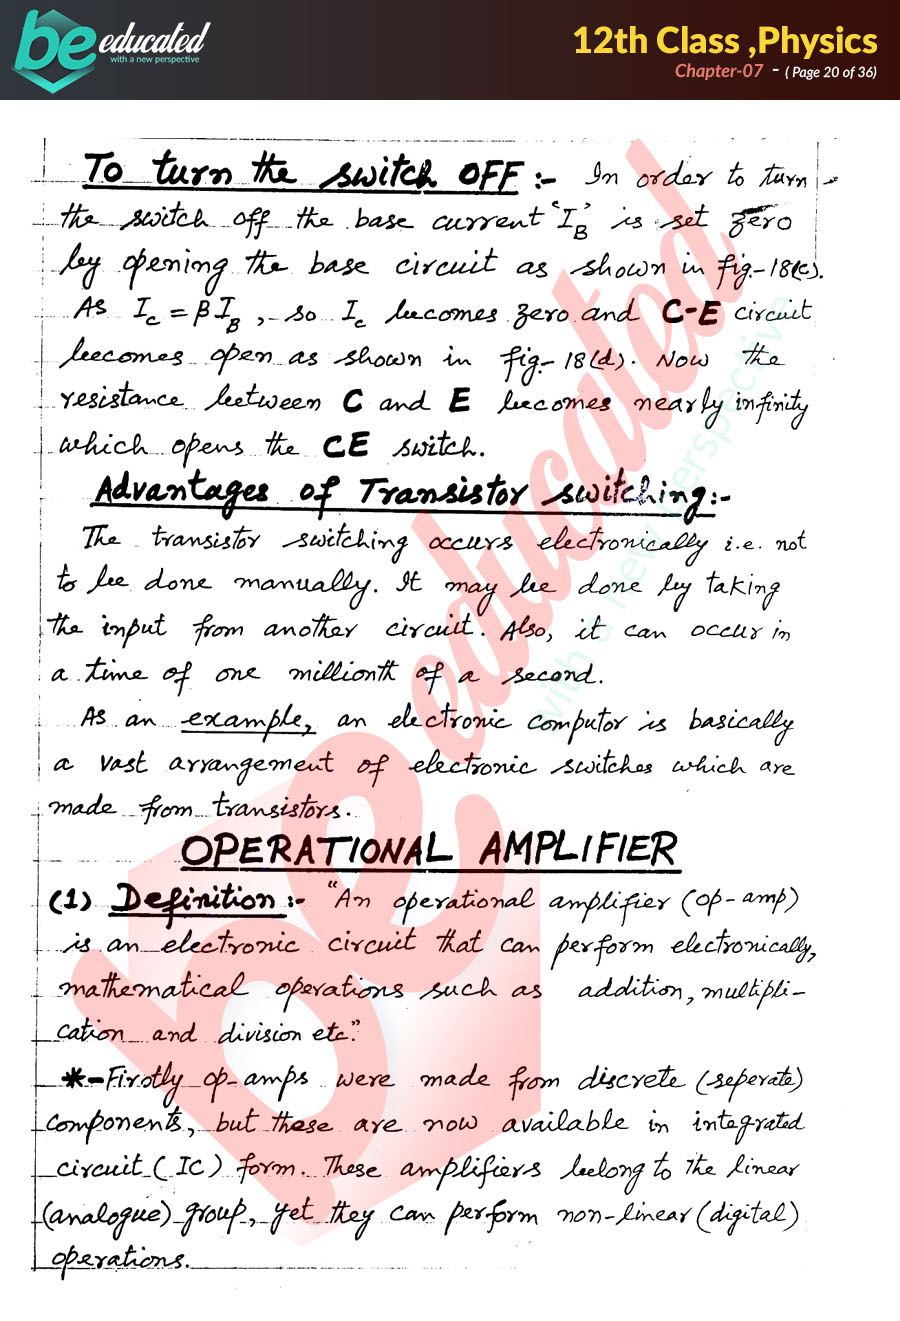 be educated
with a new perspective
12th Class ,Physics
Chapter-07 - ( Page 20 of 36)
To turn the switch OFF :- In order to turn
the switch off the base current 'I_B' is set zero
by opening the base circuit as shown in fig-18(c).
As I_c = βI_B , so I_c becomes zero and C-E circuit
becomes open as shown in fig-18(d). Now the
resistance between C and E becomes nearly infinity
which opens the CE switch.
Advantages of Transistor switching:-
The transistor switching occurs electronically i.e. not
to be done manually. It may be done by taking
the input from another circuit. Also, it can occur in
a time of one millionth of a second.
As an example, an electronic computor is basically
a vast arrangement of electronic switches which are
made from transistors.
OPERATIONAL AMPLIFIER
(1) Definition :- "An operational amplifier (op-amp)
is an electronic circuit that can perform electronically,
mathematical operations such as addition, multipli-
cation and division etc."
*-Firstly op-amps were made from discrete (seperate)
components, but these are now available in integrated
circuit (IC) form. These amplifiers belong to the linear
(analogue) group, yet they can perform non-linear (digital)
operations.
be educated
with a new perspective